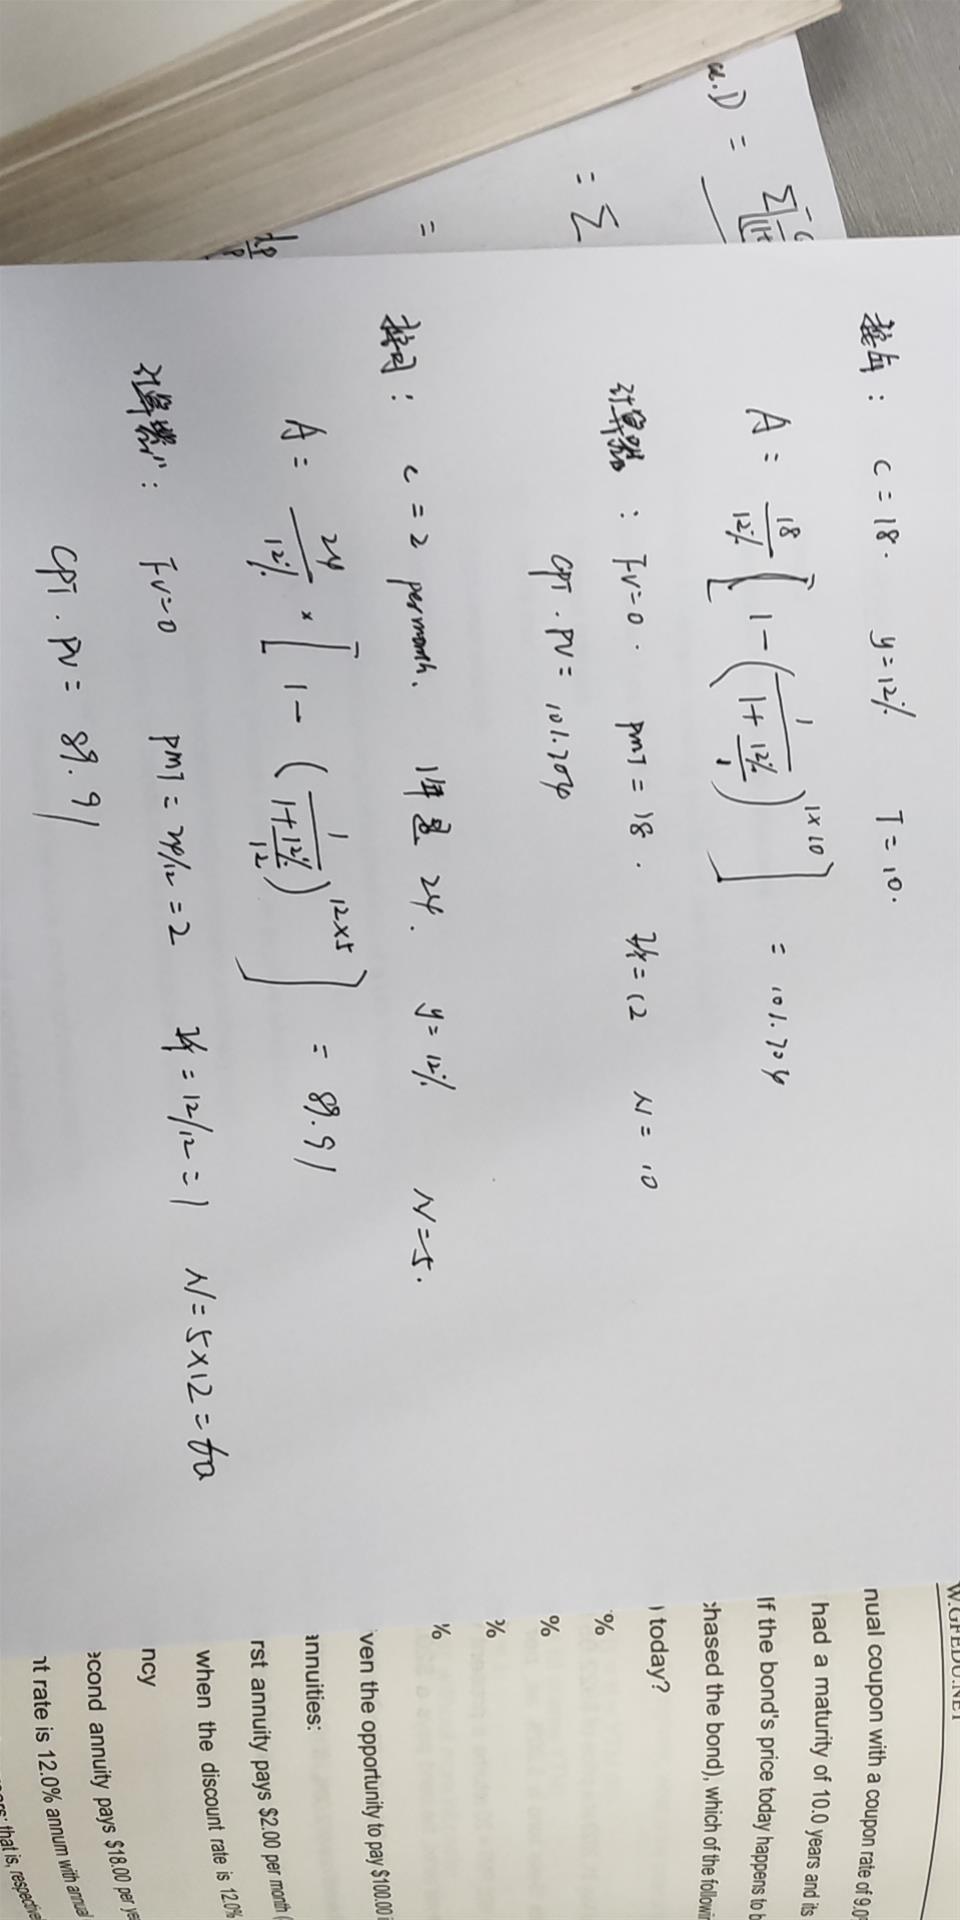 u.D = Σ
= Σ
=
dp
按年： C = 18. y = 12% T = 10.
A = 18/12% [ 1 - ( 1/(1 + 12%/1) )^(1×10) ] = 101.704
计算器： FV = 0. PMT = 18. I/Y = 12 N = 10
CPT. PV = 101.704
按月： C = 2 per month. 1年是 24. y = 12% N = 5.
A = 24/12% × [ 1 - ( 1/(1 + 12%/12) )^(12×5) ] = 89.91
计算器： FV = 0 PMT = 24/12 = 2 I/Y = 12/12 = 1 N = 5×12 = 60
CPT. PV = 89.91
W.GFEDU.NET
nual coupon with a coupon rate of 9.0
had a maturity of 10.0 years and its
If the bond's price today happens to b
chased the bond), which of the followin
) today?
%
%
%
%
ven the opportunity to pay $100.00 i
annuities:
rst annuity pays $2.00 per month (
when the discount rate is 12.0%
ncy
econd annuity pays $18.00 per ye
nt rate is 12.0% annum with annual
that is, respective